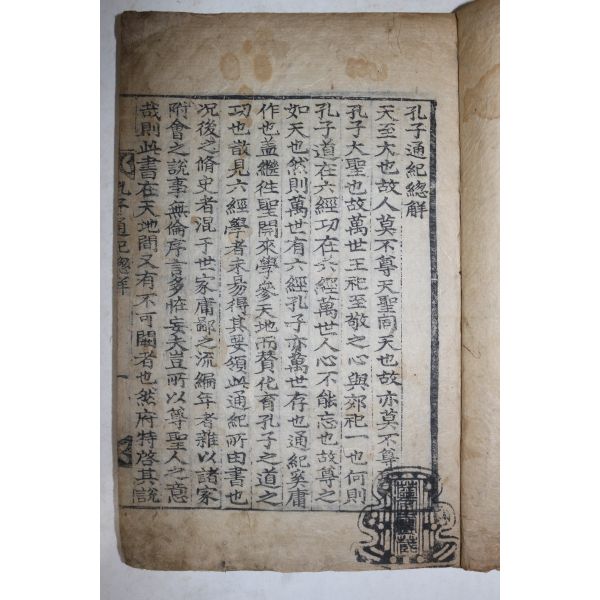 孔子通紀總觧
天至大也故人莫不尊天聖同天也故亦莫不尊
孔子大聖也故萬世王祀至敬之心與郊祀一也何則
孔子道在六經功在六經萬世人心不能忘也故尊之
如天也然則萬世有六經孔子亦萬世存也通紀奚庸
作也盖繼徃聖開來學參天地而賛化育孔子之道之
功也散見六經學者未易得其要領此通紀所由書也
況後之脩史者混于世家庸鄙之流編年者雜以諸家
附會之說事無倫序言多恠妄夫豈所以尊聖人之意
哉則此書在天地間又有不可闕者也然府特啓其說
孔子通紀總觧
一